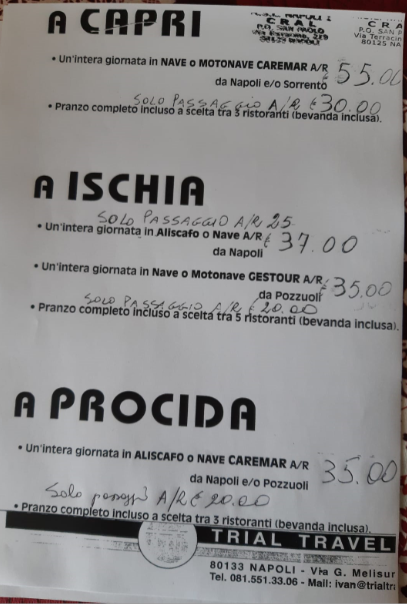 A CAPRI
C R A L
P.O. SAN PAOLO
80125 NAPOLI
C R A
P.O. SAN P
Via Terracin
80125 NA
• Un'intera giornata in NAVE o MOTONAVE CAREMAR A/R € 55.00
da Napoli e/o Sorrento
SOLO PASSAGGIO A/R € 30.00
• Pranzo completo incluso a scelta tra 3 ristoranti (bevanda inclusa).
A ISCHIA
SOLO PASSAGGIO A/R 25
• Un'intera giornata in Aliscafo o Nave A/R € 37.00
da Napoli
• Un'intera giornata in Nave o Motonave GESTOUR A/R € 35.00
da Pozzuoli
SOLO PASSAGGIO A/R € 20.00
• Pranzo completo incluso a scelta tra 5 ristoranti (bevanda inclusa).
A PROCIDA
• Un'intera giornata in ALISCAFO o NAVE CAREMAR A/R 35.00
da Napoli e/o Pozzuoli
Solo A/R € 20.00
• Pranzo completo incluso a scelta tra 3 ristoranti (bevanda inclusa).
TRIAL TRAVEL
80133 NAPOLI - Via G. Melisur
Tel. 081.551.33.06 - Mail: ivan@trialtr